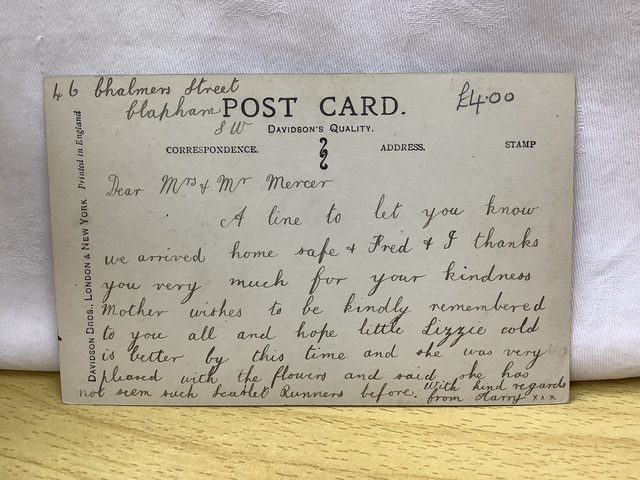 46 Chalmers Street
Clapham
S W
£4.00
POST CARD.
DAVIDSON'S QUALITY.
CORRESPONDENCE. ADDRESS. STAMP
DAVIDSON BROS., LONDON & NEW YORK. Printed in England
Dear Mrs & Mr Mercer
A line to let you know
we arrived home safe & Fred & I thanks
you very much for your kindness
Mother wishes to be kindly remembered
to you all and hope little Lizzie cold
is better by this time and she was very
pleased with the flowers and said she has
not seem such Scarlet Runners before. with kind regards
from Harry x x x